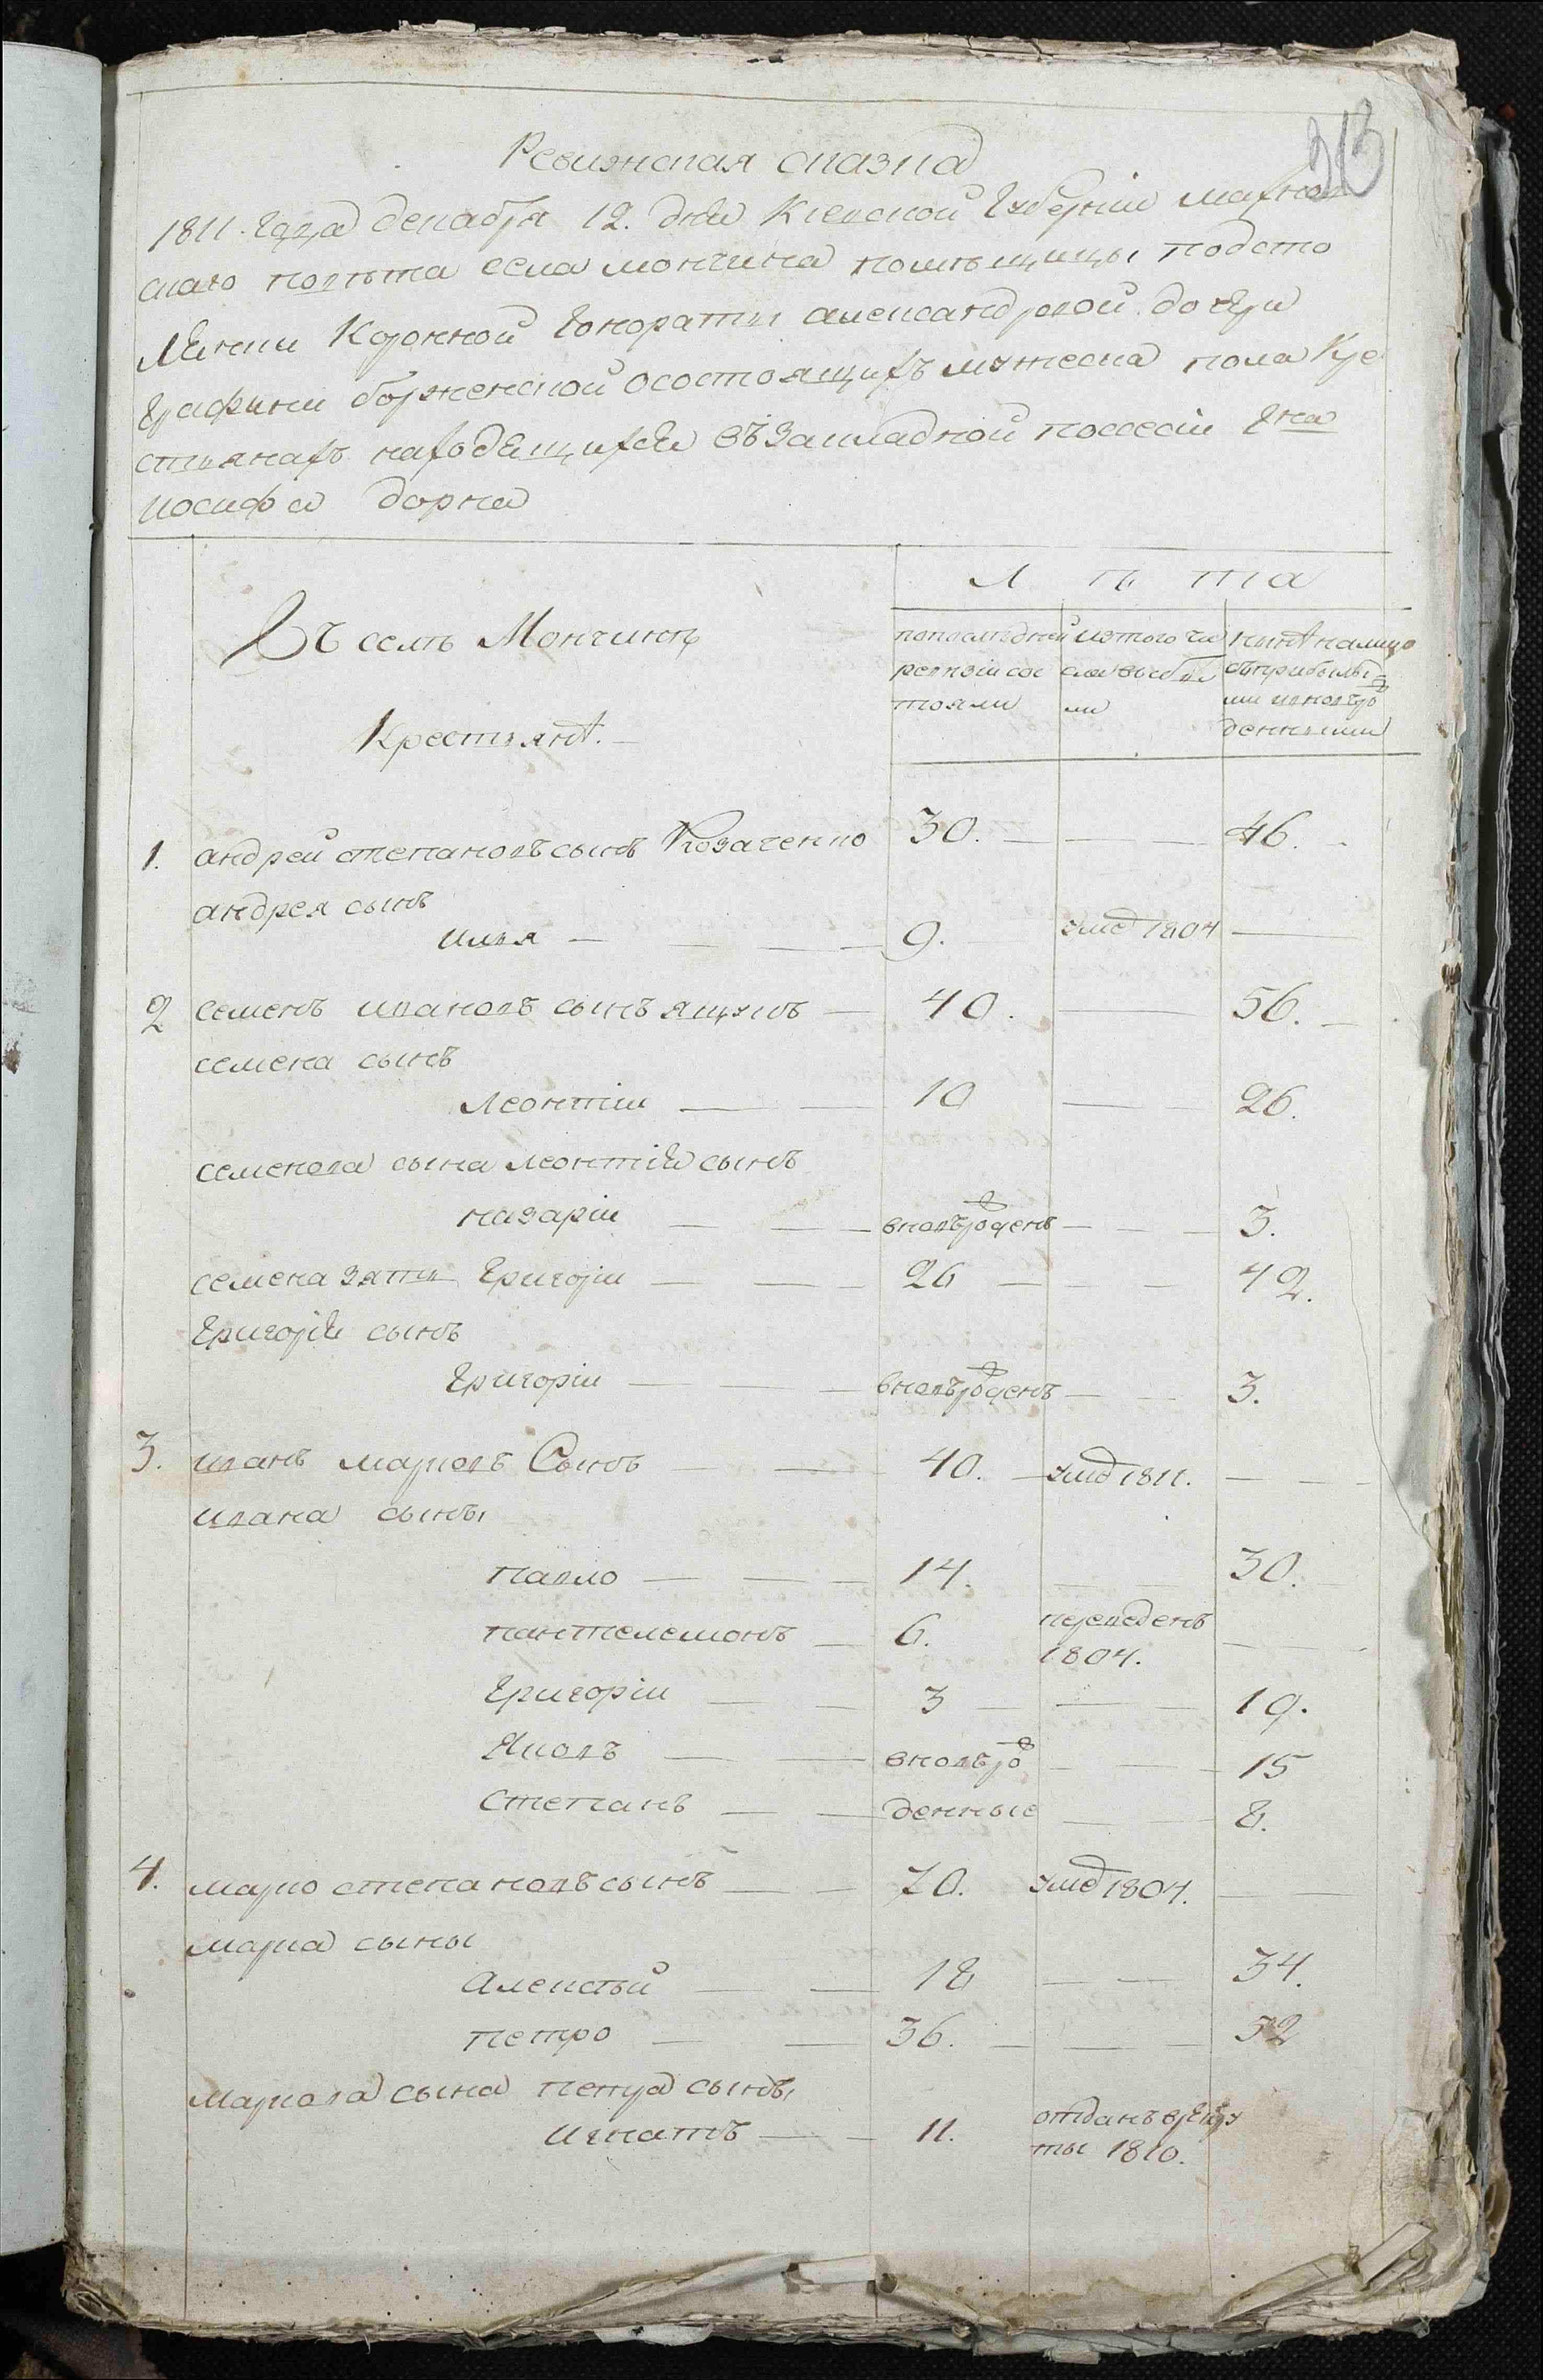 313
Ревизская сказка
1811. года декабря 12. дня Киевской Губернiи махнов
скаго повѣта села мончина помѣщицы подсто
линши Коронной Гоноратты александровой дочери
Графини борженской осостоящихъ мужеска пола Кре
стьянахъ находящихся въ закладной поссесiи Гна
иосифа дорна
Въ селѣ Мончинѣ
Крестьянъ.
Л ѣ та
попослѣдней ревизiи сос тояли
изтого чи сла выбы ли
нынѣ налицо съ прибылы ми и вновь ро жденными
1. андрей степановъ сынъ Козаченко 30. — — 46.
андрея сынъ
илья — 9. умеръ 1804 —
2 семенъ ивановъ сынъ ящукъ — 40. — 56. —
семена сынъ
леонтiй — 10 — 26.
семенова сына леонтiя сынъ
назарiй — вновь рожденъ — 3.
семена зять Григорiй — 26 — 42.
Григорiя сынъ
Григорiй — вновь рожденъ — 3.
3. иванъ марковъ Сынъ — 40. — умръ 1811. —
ивана сыны
павло — 14. — 30.
пантелемонъ — 6. переведенъ 1804. —
Григорiй — 3 — 19.
Яковъ — вновь ро — 15
Степанъ — жденные — 8.
4. марко степановъ сынъ — 70. умръ 1804. —
марка сыны
Алексѣй — 18 — 34.
петро — 36. — 52
маркова сына петра сынъ
игнатъ — 11. отданъ в рекру ты 1810.